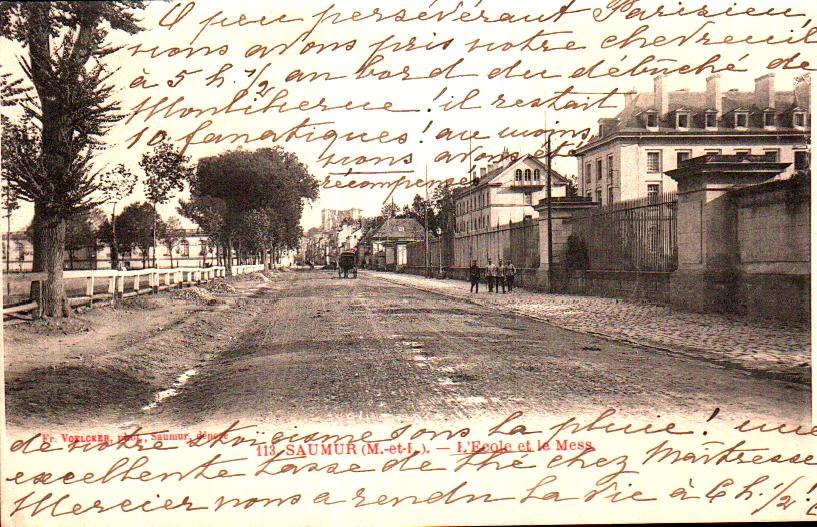 O peu persévérant Parisien,
nous avons pris notre chevreuil
à 5 h. 1/2 au bord du débûché de
! il restait
10 fanatiques ! au moins
nous avons été
récompensés
de notre stoïcisme sous la pluie ! une
excellente tasse de thé chez Maîtresse
Mercier nous a rendu la vie à 6 h. 1/2 !
Fr. VOELCKER, phot., Saumur, déposé
113. SAUMUR (M.-et-L.). — L'Ecole et le Mess